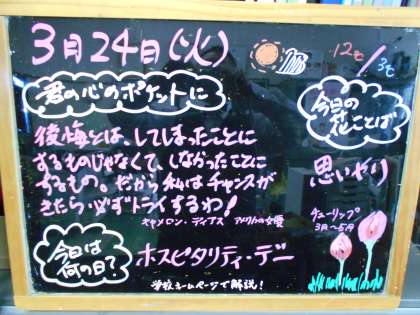 3月24日(火)
12℃/3℃
君の心のポケットに
後悔とは、してしまったことに
するものじゃなくて、しなかったことに
するもの。だから私はチャンスが
きたら必ずトライするわ!
キャメロン・ディアス アメリカの女優
今日の
花ことば
思いやり
チューリップ
3月〜5月
今日は
何の日?
ホスピタリティ・デー
学校ホームページで解説!